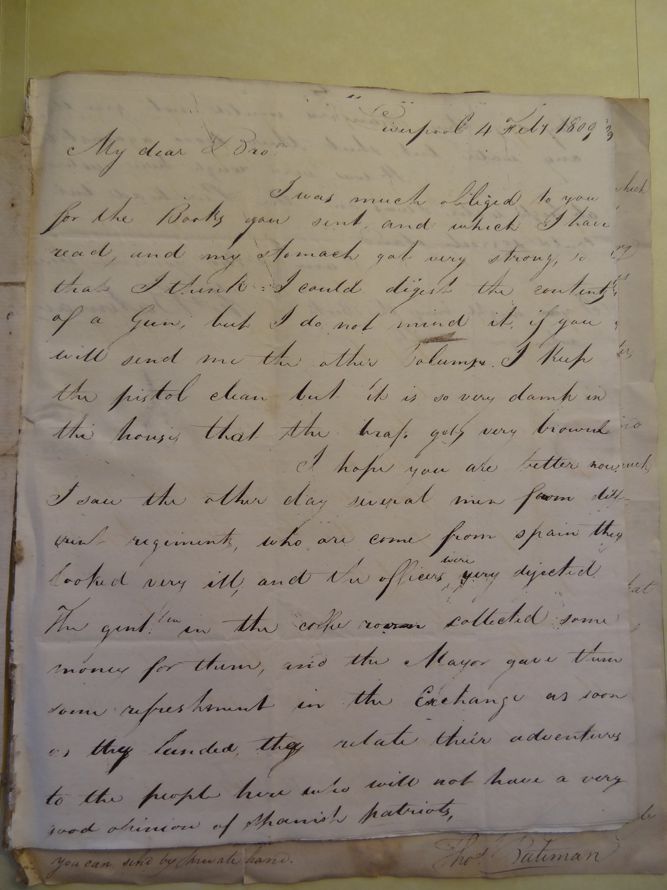 Liverpool 4 Feby 1809
My dear Bro
I was much obliged to you
for the Books you sent and which I have
read, and my stomach got very strong, so
that I think I could digest the contents
of a Gun, but I do not mind it, if you
will send me the other Volumes. I keep
the pistol clean but it is so very damp in
this house that the brass gets very browned
I hope you are better now
I saw the other day several men from diff-
erent regiments, who are come from spain they
looked very ill, and the officers were very dejected
The gentlen in the coffee room collected some
money for them, and the Mayor gave them
some refreshment in the Exchange as soon
as they landed, they relate their adventures
to the people here who will not have a very
good opinion of Spanish patriots,
you can send by private hand.
Thos Bateman